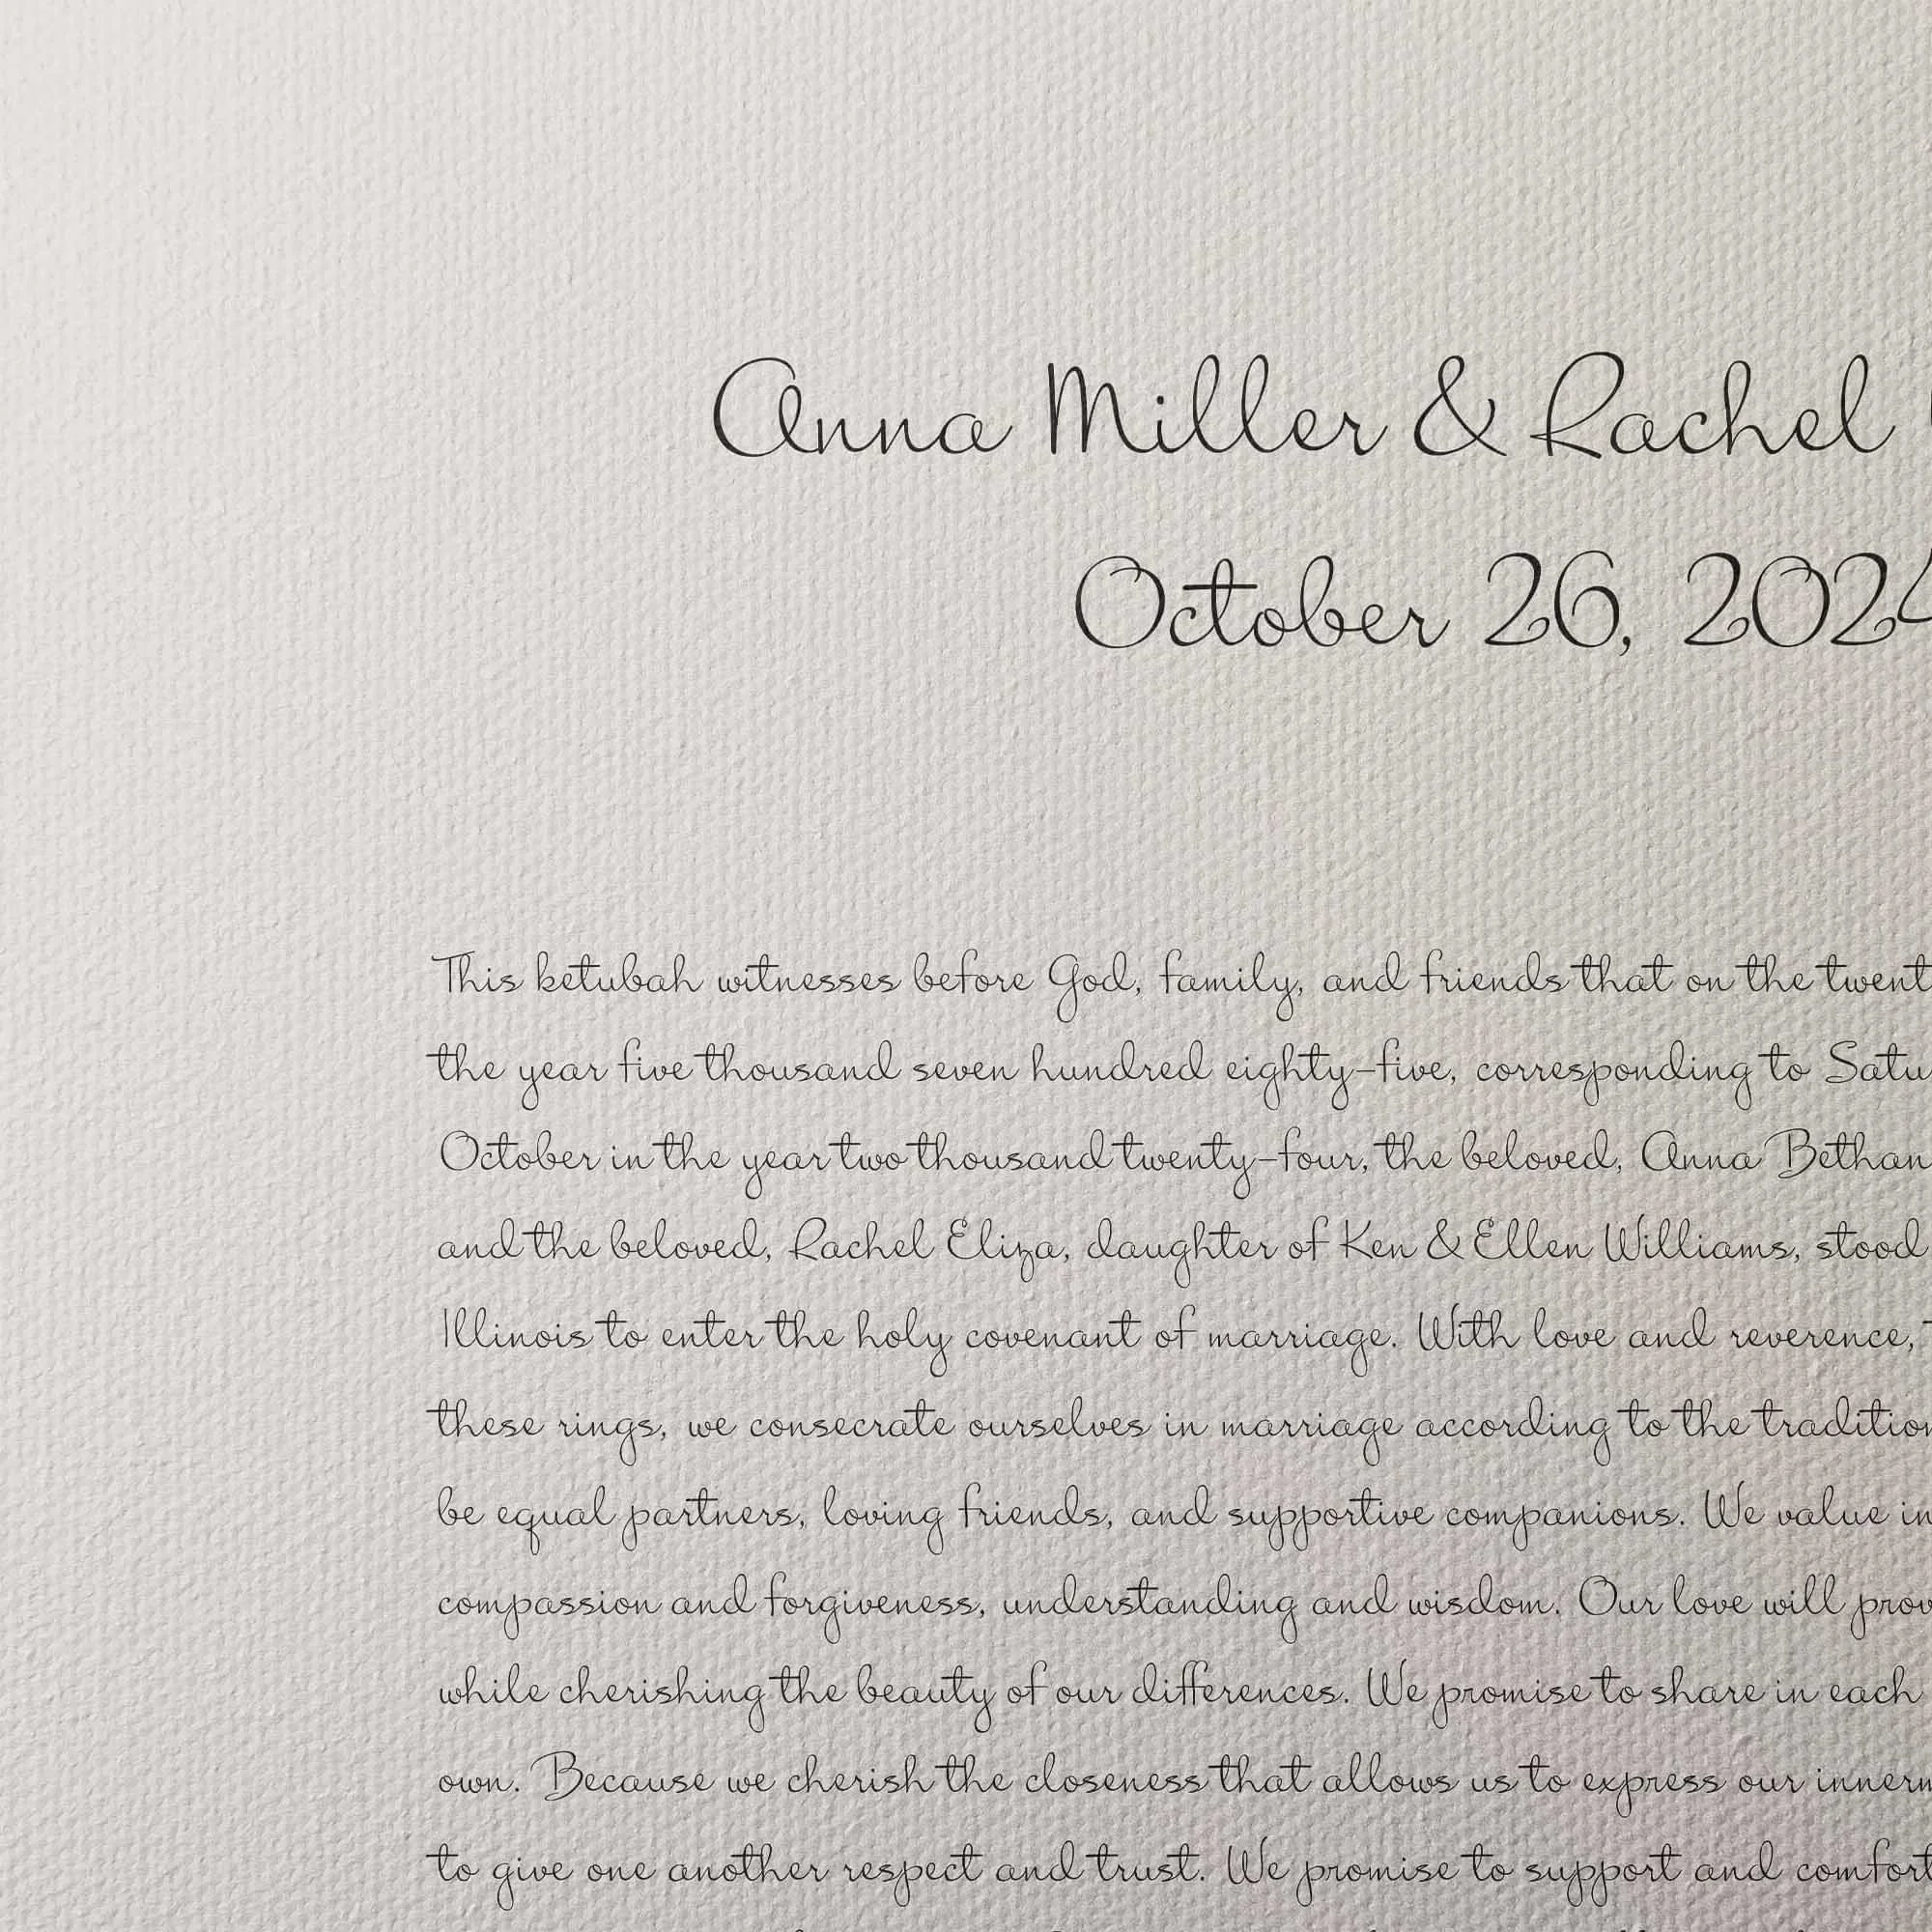 Anna Miller & Rachel
October 26, 2024
This ketubah witnesses before God, family, and friends that on the twent
the year five thousand seven hundred eighty-five, corresponding to Satu
October in the year two thousand twenty-four, the beloved, Anna Bethan
and the beloved, Rachel Eliza, daughter of Ken & Ellen Williams, stood
Illinois to enter the holy covenant of marriage. With love and reverence,
these rings, we consecrate ourselves in marriage according to the tradition
be equal partners, loving friends, and supportive companions. We value in
compassion and forgiveness, understanding and wisdom. Our love will prov
while cherishing the beauty of our differences. We promise to share in each
own. Because we cherish the closeness that allows us to express our innerm
to give one another respect and trust. We promise to support and comfort